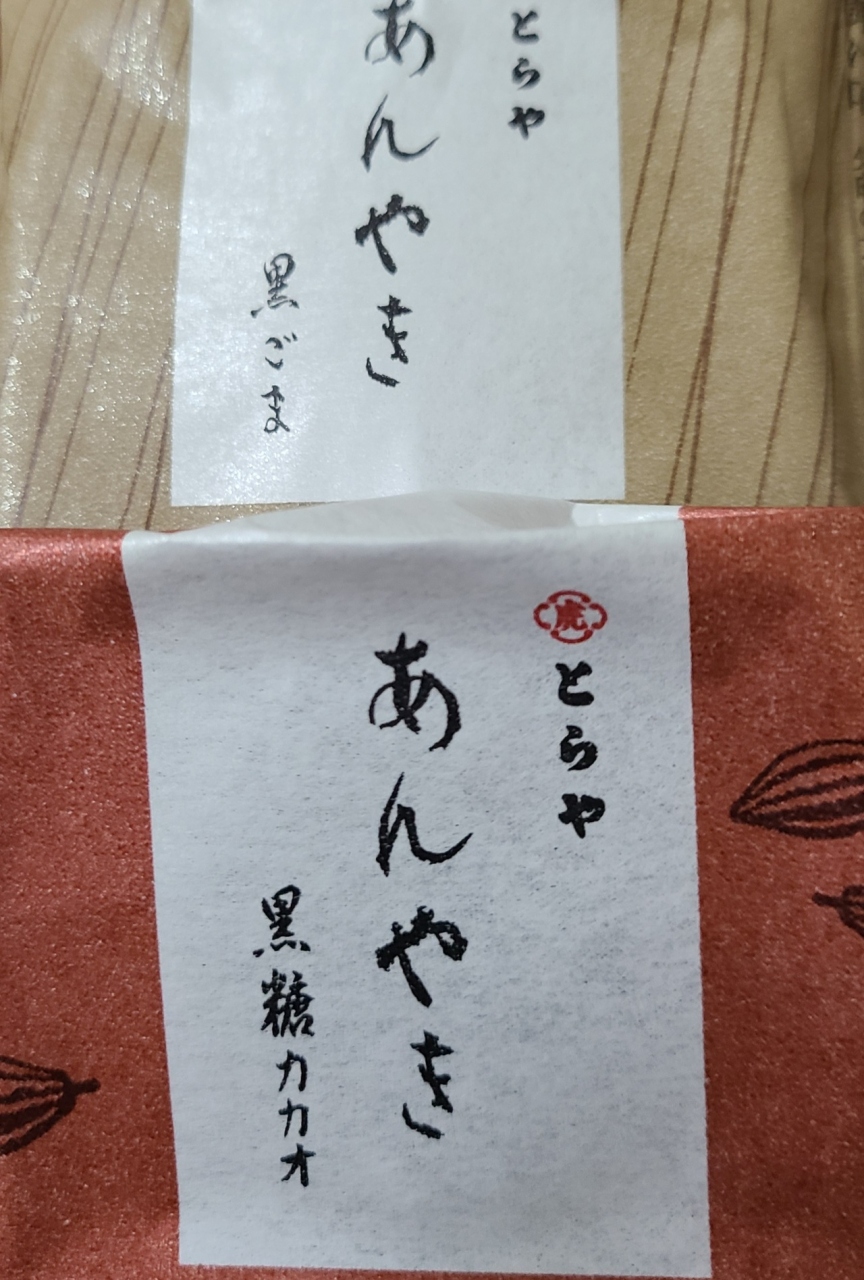 とらや
あんやき
黒ごま
虎
とらや
あんやき
黒糖カカオ